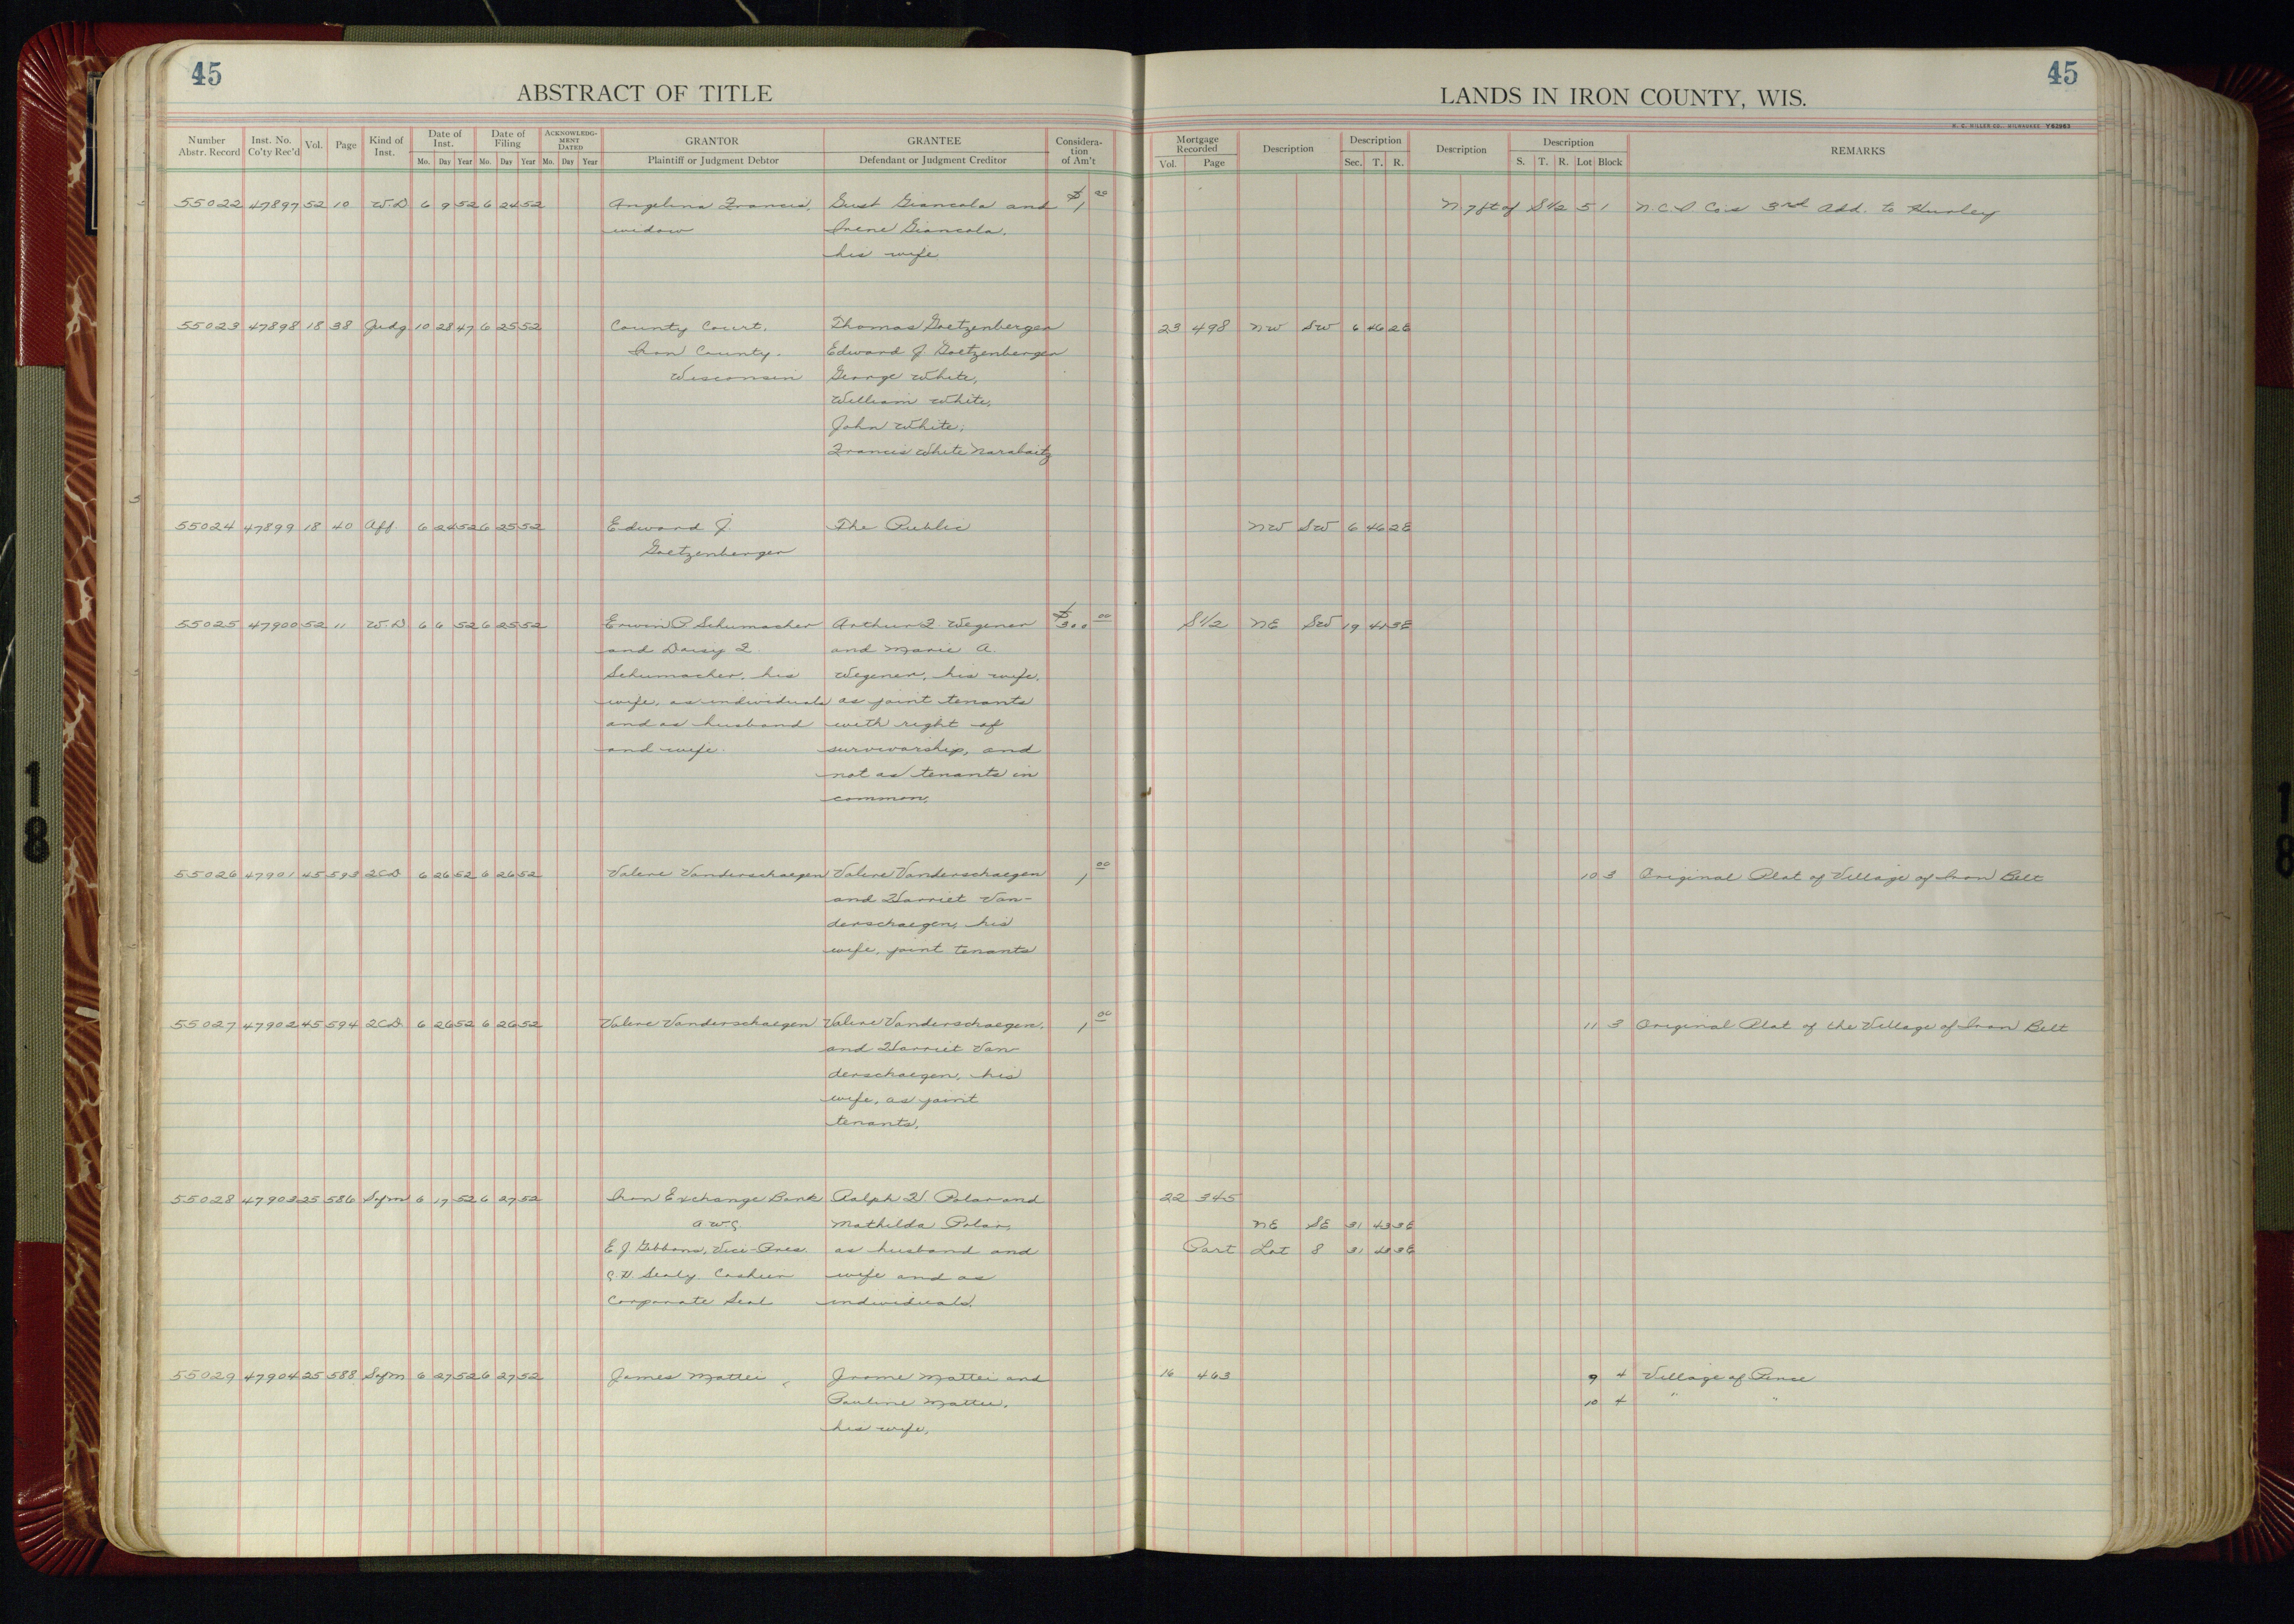 45
ABSTRACT OF TITLE
LANDS IN IRON COUNTY, WIS.
45
H. C. MILLER CO., MILWAUKEE Y62963
Number Abstr. Record Inst. No. Co'ty Rec'd Vol. Page Kind of Inst. Date of Inst. Mo. Day Year Date of Filing Mo. Day Year ACKNOWLEDGMENT DATED Mo. Day Year GRANTOR Plaintiff or Judgment Debtor GRANTEE Defendant or Judgment Creditor Considera-tion of Am't Mortgage Recorded Vol. Page Description Description Sec. T. R. Description Description S. T. R. Lot Block REMARKS
55022 47897 52 10 W.D 6 9 52 6 24 52 Angelina Francis, Gust Giancola and $1 00 N 7 ft of S 1/2 5 1 N C I Co's 3rd Add. to Hurley
widow Irene Giancola,
his wife
55023 47898 18 38 Judg 10 28 47 6 25 52 County Court, Thomas Goetzenberger 23 498 NW SW 6 46 2E
Iron County, Edward J. Goetzenberger
Wisconsin George White,
William White,
John White,
Francis White Narabaitz
55024 47899 18 40 Aff 6 24 52 6 25 52 Edward J. The Public NW SW 6 46 2E
Goetzenberger
55025 47900 52 11 W.D 6 6 52 6 25 52 Erwin P. Schumacher Arthur F. Wegener $300 00 S 1/2 NE SW 19 41 3E
and Daisy F. and Marie A.
Schumacher, his Wegener, his wife,
wife, as individuals as joint tenants
and as husband with right of
and wife. survivorship, and
not as tenants in
common,
55026 47901 45 593 2CD 6 26 52 6 26 52 Valere Vanderschaegen Valere Vanderschaegen 1 00 10 3 Original Plat of Village of Iron Belt
and Harriet Van-
derschaegen, his
wife, joint tenants
55027 47902 45 594 2CD 6 26 52 6 26 52 Valere Vanderschaegen Valere Vanderschaegen, 1 00 11 3 Original Plat of the Village of Iron Belt
and Harriet Van-
derschaegen, his
wife, as joint
tenants,
55028 47903 25 586 Sfm 6 17 52 6 27 52 Iron Exchange Bank Ralph H. Polar and 22 345
Mathilda Polar, NE SE 31 43 3E
E J Gibbons, Vice-Pres. as husband and Part Lot 8 31 43 3E
Sealy Cashier wife and as
Corporate Seal individuals.
55029 47904 25 588 Sfm 6 27 52 6 27 52 James Mattei Jrome Mattei and 16 463 9 4 Village of Pence
Pauline Mattei, 10 4 " "
his wife,
18
18